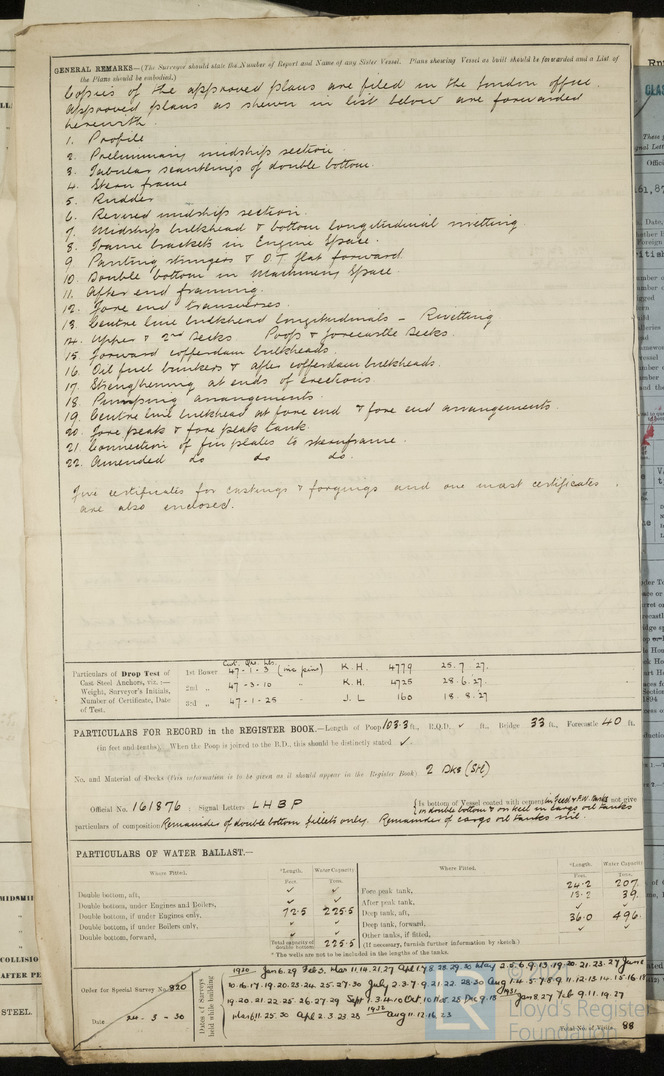 GENERAL REMARKS—(The Surveyor should state the Number of Report and Name of any Sister Vessel. Plans showing Vessel as built should be forwarded and a List of
the Plans should be embodied.)
Copies of the approved plans are filed in the London office.
Approved plans as shewn in list below are forwarded
herewith
1. Profile
2. Preliminary midship section
3. Tabular scantlings of double bottom.
4. Stern frame
5. Rudder
6. Revised midship section.
7. Midship bulkhead & bottom longitudinal rivetting
8. Frame brackets in Engine Space.
9. Panting stringers & O.T. flat forward
10. Double bottom in Machinery Space.
11. After end framing.
12. Fore end transverses.
13. Centre line bulkhead longitudinals – Rivetting
14. Upper & 2nd Decks Poop & forecastle decks.
15. Forward cofferdam bulkheads.
16. Oil fuel bunkers & after cofferdam bulkheads.
17. Strengthening at ends of erections
18. Pumping arrangements.
19. Centre line bulkhead at fore end & fore end arrangements.
20. Fore peak & fore peak tank.
21. Connection of fin plates to sternframe.
22. Amended do do do.
Five certificates for castings & forgings and one mast certificates
are also enclosed.
Particulars of Drop Test of
Cast Steel Anchors, viz.:—
Weight, Surveyor's Initials,
Number of Certificate, Date
of Test.
Cwt. Qrs. Lbs.
1st Bower 47-1-3 (inc pins) K.H. 4779 25.7.27.
2nd „ 47-3-10 „ K.H. 4725 28.6.27.
3rd „ 47-1-25 J.L 160 18.8.27
PARTICULARS FOR RECORD in the REGISTER BOOK.—Length of Poop 103.3 ft., R.Q.D. ✓ ft., Bridge 33 ft., Forecastle 40 ft.
(in feet and tenths). When the Poop is joined to the B.D., this should be distinctly stated ✓.
No. and Material of Decks (this information is to be given as it should appear in the Register Book) 2 Dks (Stl)
Official No. 161876 ; Signal Letters LHBP
Is bottom of Vessel coated with cement in Feed & F.W. tanks not give
in double bottom & on keel in cargo oil tanks
particulars of composition Remainder of double bottom fillets only. Remainder of cargo oil tanks nil.
PARTICULARS OF WATER BALLAST.—
Where Fitted. *Length. Water Capacity
Feet. Tons.
Double bottom, aft, ✓ ✓
Double bottom, under Engines and Boilers, ✓ ✓
Double bottom, if under Engines only, 72.5 225.5
Double bottom, if under Boilers only, ✓ ✓
Double bottom, forward, ✓ ✓
Total capacity of double bottom 225.5
Where Fitted. *Length. Water Capacity
Feet. Tons.
Fore peak tank, 24.2 207.
After peak tank, 39.
Deep tank, aft, ✓ ✓
Deep tank, forward, 36.0 496
Other tanks, if fitted, ✓ ✓
(If necessary, furnish further information by sketch.)
* The wells are not to be included in the lengths of the tanks.
Order for Special Survey No. 820
Date 24-3-30
Dates of Surveys held while building
1930 Jan 6.29 Feb 3. Mar 11.14.21.27 Apl 1.7.8.28.29.30 May 2.5.6.9.13.19.20.21.23.27 June
10.16.17.19.20.23.24.25.27.30 July 2.3.7.9.21.22.28.30 Aug 1.4.5.7.8.9.11.12.13.14.15.16.18
19.20.21.22.25.26.27.29 Sept 1.3.4.10 Oct. 10 Nov 28 Dec 9.15 1931 Jan 8.27 Feb 9.11.19.27
Mar 6.11.25.30 Apl 2.3.23.28 1932 Aug 11.12.16.23
Total No. of Visits 88
© 2021
LR
Lloyd's Register
Foundation